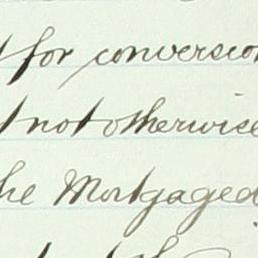 for conversion
not otherwise
the Mortgaged